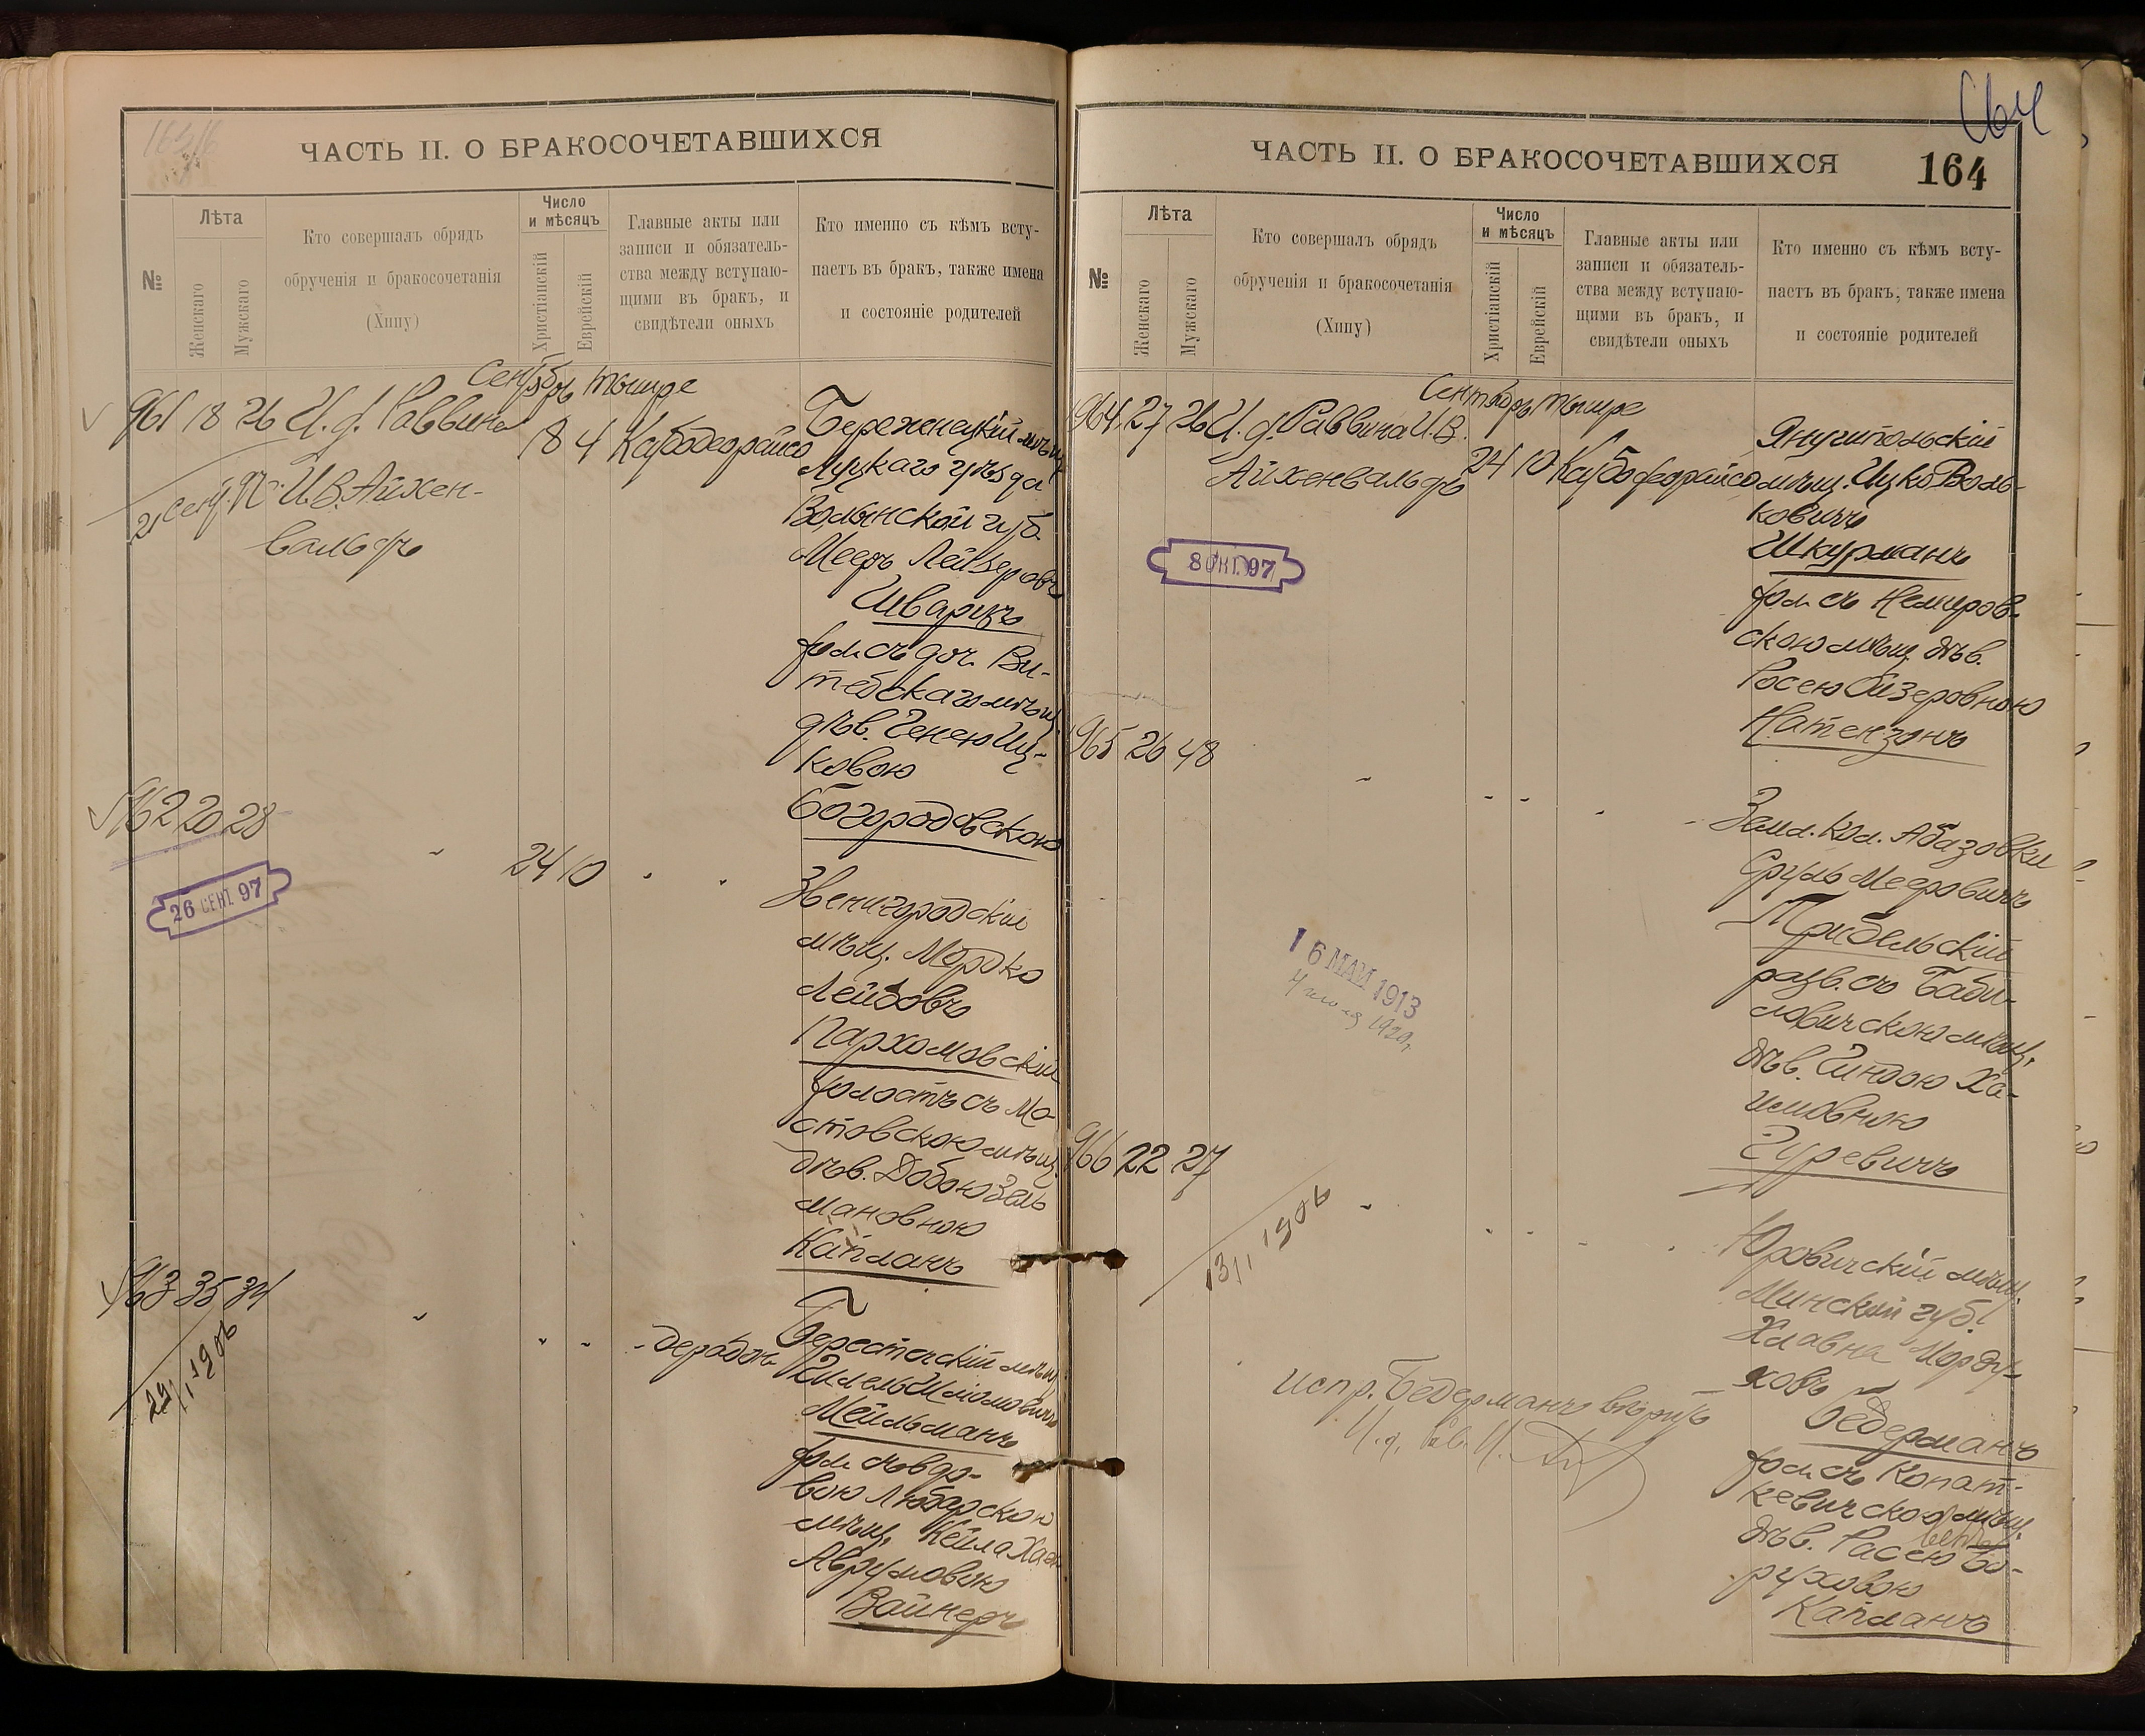 ЧАСТЬ II. О БРАКОСОЧЕТАВШИХСЯ
№
Лѣта
Женскаго
Мужскаго
Кто совершалъ обрядъ
обрученія и бракосочетанія
(Хипу)
Число
и мѣсяцъ
Христіанскій
Еврейскій
Главные акты или
записи и обязатель-
ства между вступаю-
щими въ бракъ, и
свидѣтели оныхъ
Кто именно съ кѣмъ всту-
паетъ въ бракъ, также имена
и состояніе родителей
Сентябрь тышре
961 18 26 И. д. Раввина
И.В. Айхен-
вальдъ
18 4
Бережнецкій мѣщ.
Луцкаго уѣзда
Волынской губ.
Мееръ Лейзеровъ
Шварцъ
хол. съ доч. Ви-
тебскаго мѣщ.
дѣв. Генею Иц-
ковою
Богородовскою
962 20 28
26 СЕНТ 97
24 10
Звенигородскій
мѣщ. Мордко
Лейбовъ
Пархомовскій
холостъ съ Мо-
стовскою мѣщ.
дѣв. Добою Зель
мановною
Капланъ
963 35 34
29/I 1906
Берестечскій мѣщ.
Мейльманъ
хол. съ вдо-
вою Любарскою
мѣщ. Кейла Хая
Аврумовою
Вайнеръ
ЧАСТЬ II. О БРАКОСОЧЕТАВШИХСЯ
164
№
Лѣта
Женскаго
Мужскаго
Кто совершалъ обрядъ
обрученія и бракосочетанія
(Хипу)
Число
и мѣсяцъ
Христіанскій
Еврейскій
Главные акты или
записи и обязатель-
ства между вступаю-
щими въ бракъ, и
свидѣтели оныхъ
Кто именно съ кѣмъ всту-
паетъ въ бракъ, также имена
и состояніе родителей
Сентябрь тышре
964 27 26 И. д. Раввина И.В.
Айхенвальдъ
24 10
8 ОКТ. 97
Янушпольскій
мѣщ. Ицко Воль-
ковичъ
Шкурманъ
хол. съ Немиров-
скою мѣщ. дѣв.
Росею Ойзеровною
Натензонъ
965 26 48
16 МАЙ 1913
Земл. кол. Абазовки
Сруль Мееровичъ
Придельскій
разв. съ Баби-
новичскою мѣщ.
дѣв. Гиндою Ха-
имовною
Гуревичъ
966 22 27
13/I 1906
Юровичскій мѣщ.
Минской губ.
Хлавна Морду-
ховъ
Бедерманъ
хол. съ Копат-
кевичскою мѣщ.
дѣв. Расею Бо-
руховою
Капланъ
испр. Бедерманъ вѣрить
И. д. Рав. И.